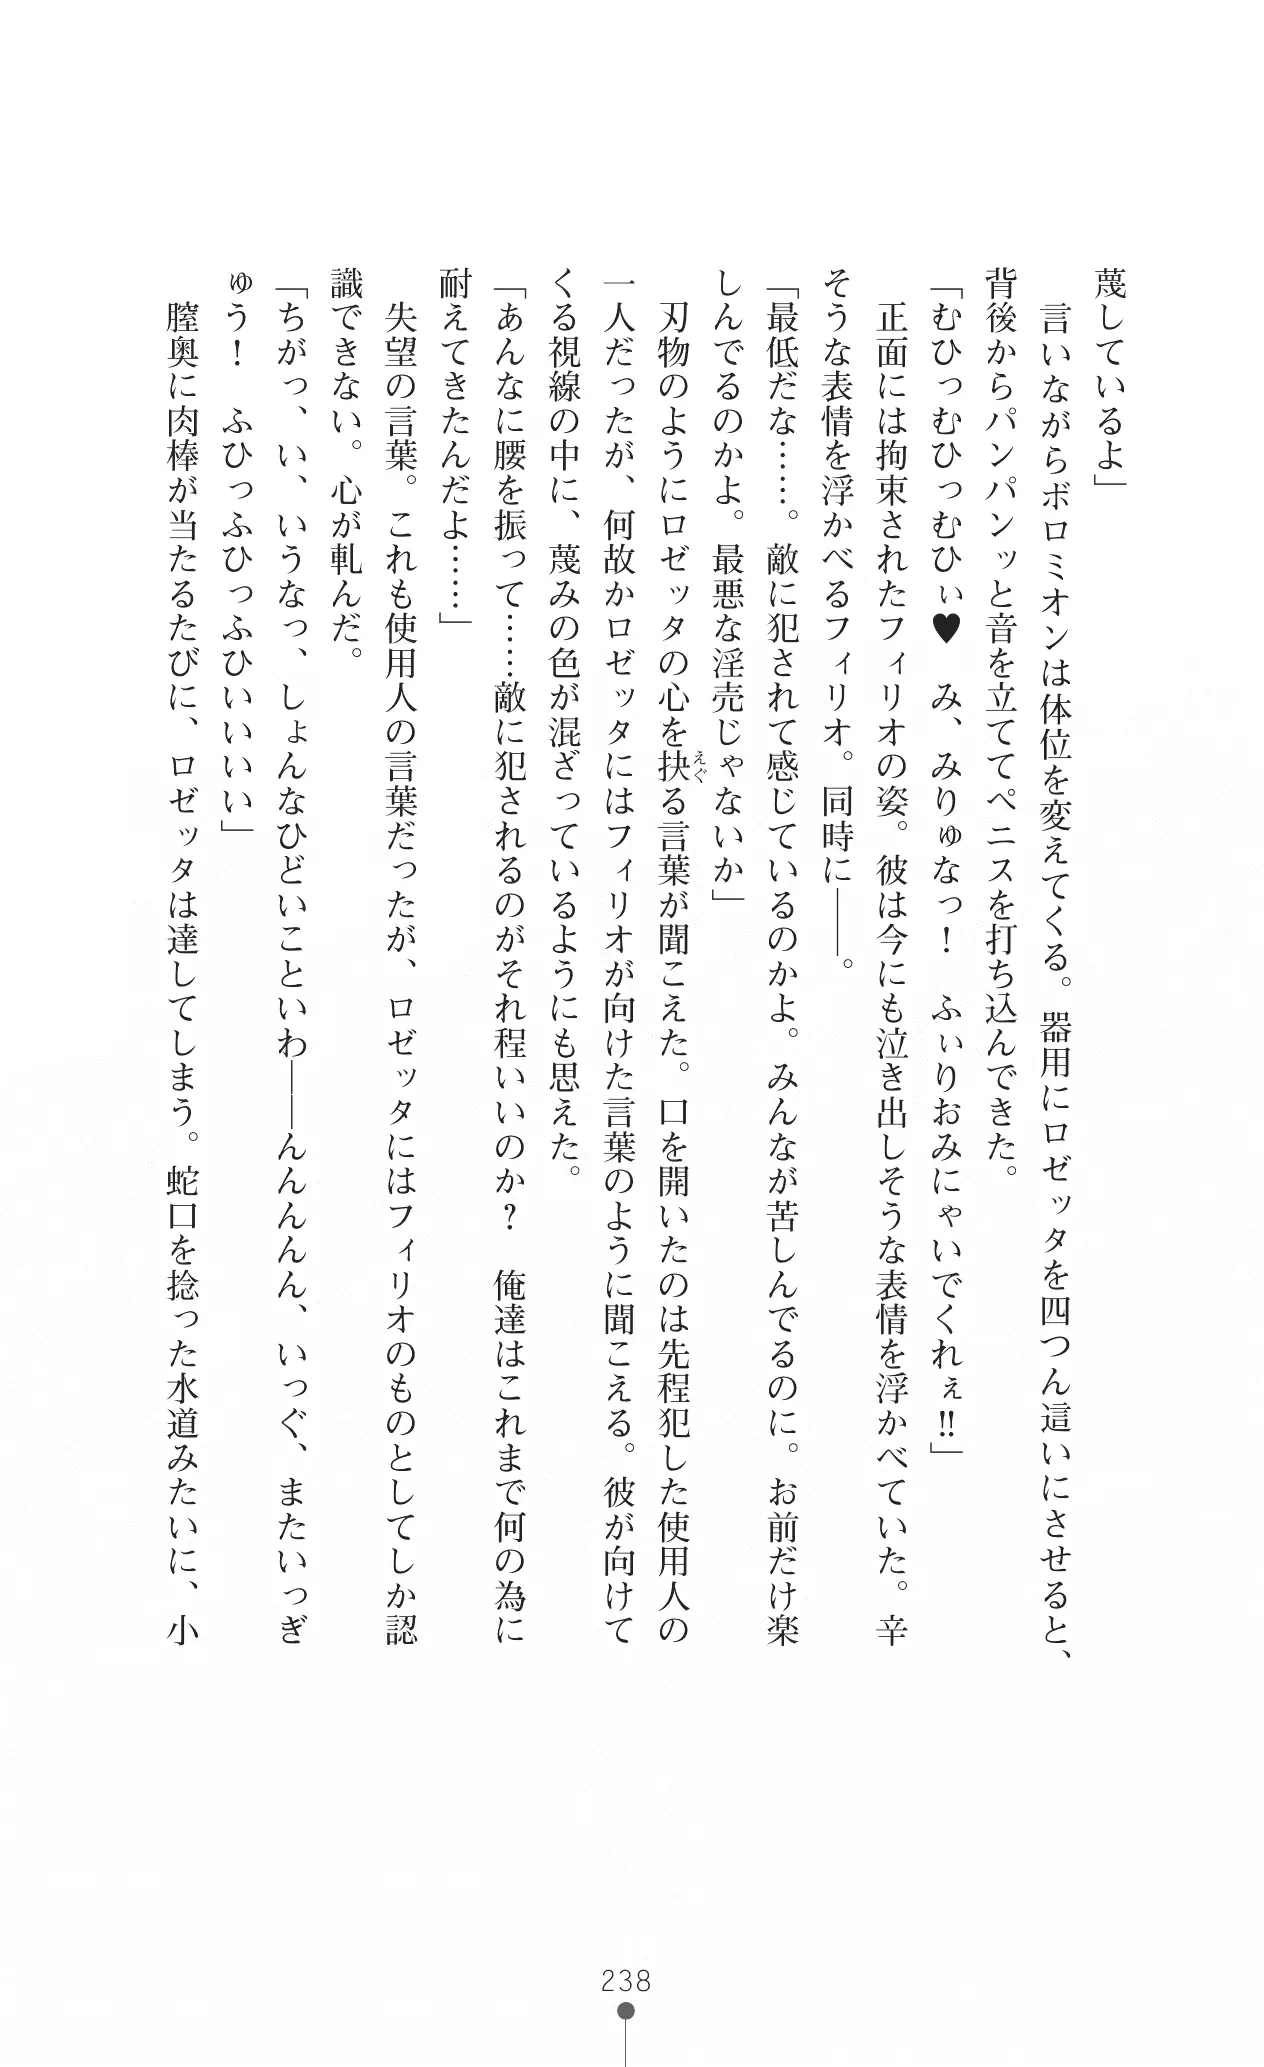 蔑しているよ」
　言いながらボロミオンは体位を変えてくる。器用にロゼッタを四つん這いにさせると、
背後からパンパンッと音を立ててペニスを打ち込んできた。
「むひっむひっむひぃ♥　み、みりゅなっ！　ふぃりおみにゃいでくれぇ!!」
　正面には拘束されたフィリオの姿。彼は今にも泣き出しそうな表情を浮かべていた。辛
そうな表情を浮かべるフィリオ。同時に――。
「最低だな……。敵に犯されて感じているのかよ。みんなが苦しんでるのに。お前だけ楽
しんでるのかよ。最悪な淫売じゃないか」
　刃物のようにロゼッタの心を抉る言葉が聞こえた。口を開いたのは先程犯した使用人の
えぐ
一人だったが、何故かロゼッタにはフィリオが向けた言葉のように聞こえる。彼が向けて
くる視線の中に、蔑みの色が混ざっているようにも思えた。
「あんなに腰を振って……敵に犯されるのがそれ程いいのか？　俺達はこれまで何の為に
耐えてきたんだよ……」
　失望の言葉。これも使用人の言葉だったが、ロゼッタにはフィリオのものとしてしか認
識できない。心が軋んだ。
「ちがっ、い、いうなっ、しょんなひどいこといわ――んんんん、いっぐ、またいっぎ
ゅう！　ふひっふひっふひいいいい」
　膣奥に肉棒が当たるたびに、ロゼッタは達してしまう。蛇口を捻った水道みたいに、小
238